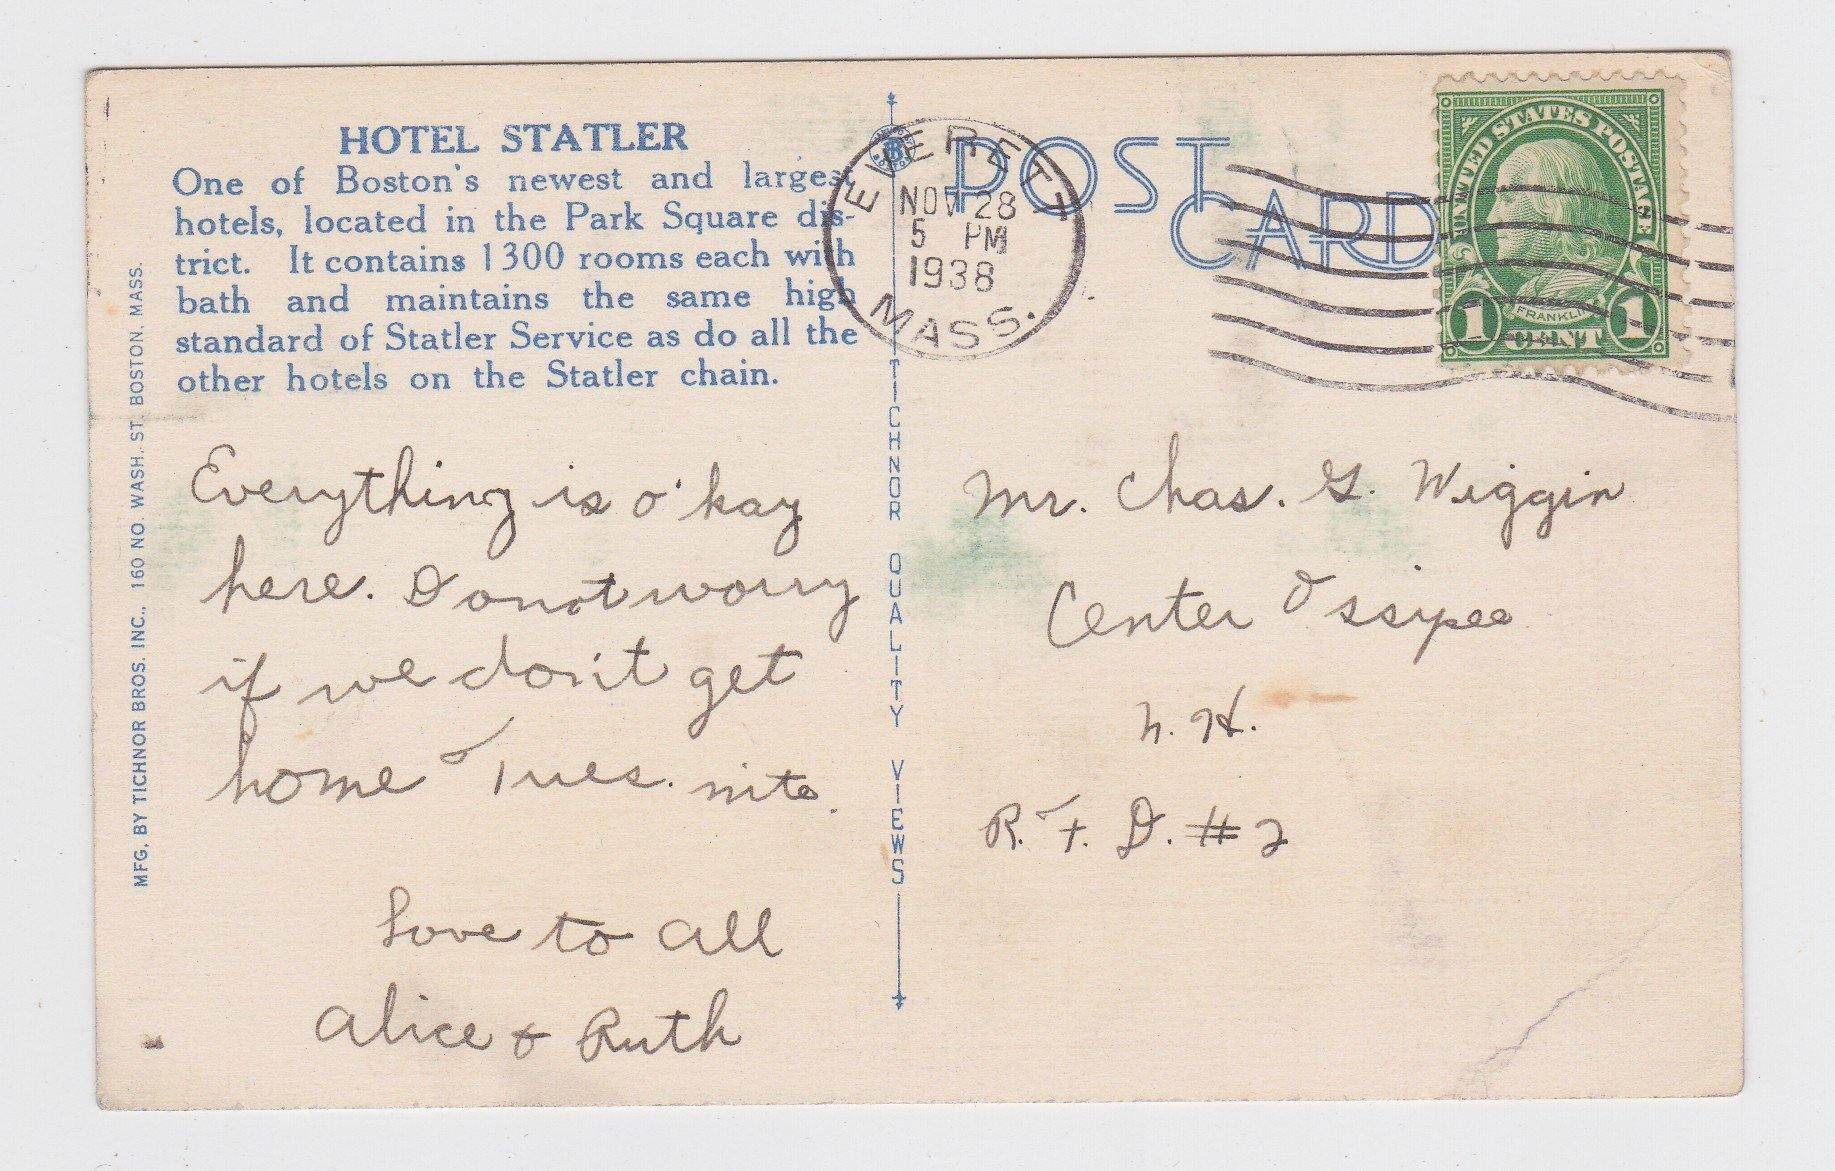 HOTEL STATLER
One of Boston's newest and largest
hotels, located in the Park Square dis-
trict. It contains 1300 rooms each with
bath and maintains the same high
standard of Statler Service as do all the
other hotels on the Statler chain.
MFG. BY TICHNOR BROS. INC., 160 NO. WASH. ST. BOSTON, MASS.
Everything is o'kay
here. Do not worry
if we don't get
home Tues. nite.
Love to all
Alice & Ruth
TICHNOR QUALITY VIEWS
EVERETT
NOV 28
5 PM
1938
MASS.
POST
CARD
UNITED STATES POSTAGE
FRANKLIN
1 CENT 1
Mr. Chas. G. Wiggin
Center Ossipee
N. H.
R. F. D. #2